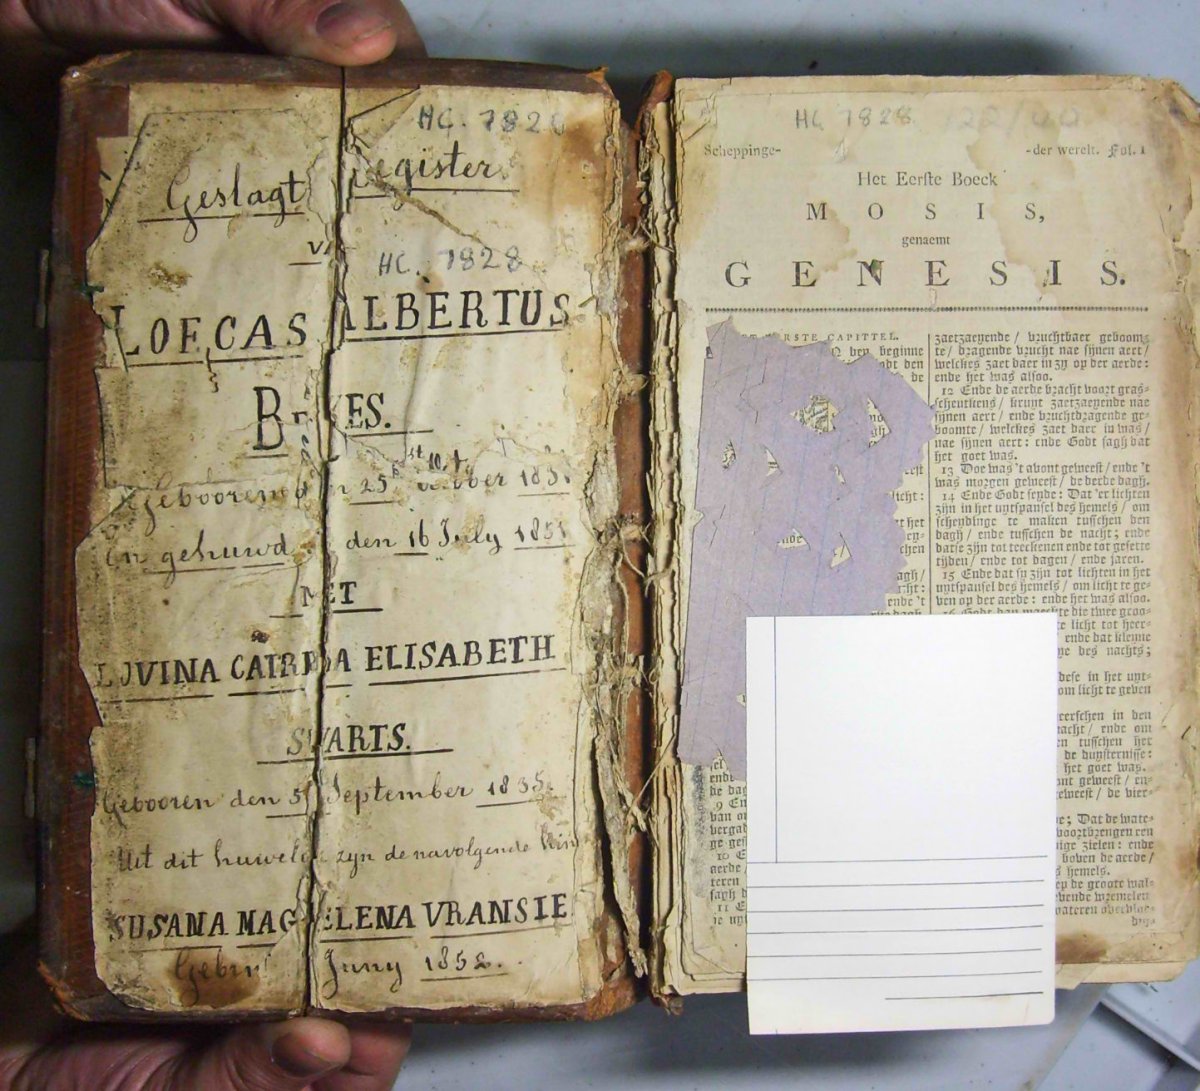 HC. 7828
Geslagt register
HC. 7828
LOFCAS ALBERTUS
BryES.
Gebooren den 25st October 183
en gehuwd den 16 July 185
MET
LOVINA CATRINA ELISABETH
SWARTS.
Gebooren den 5 September 1835.
Uit dit huwelijk zyn de navolgende kin
SUSANA MAGDELENA VRANSIE
Juny 1852.
HC 7828 22/00
Scheppinge- -der werelt. Fol. 1
Het Eerste Boeck
MOSIS,
genaemt
GENESIS.
ERSTE CAPITTEL.
N den beginne
de
zaetzaeyende / vruchtbaer geboom-
te / dragende vrucht nae sijnen aert /
welckes zaet daer in zy op der aerde:
ende het was alsoo.
12 Ende de aerde bracht voort gras-
scheutkens / kruyt zaetzaeyende nae
sijnen aert / ende vruchtdragende ge-
boomte / welckes zaet daer in was /
nae sijnen aert: ende Godt sagh dat
het goet was.
13 Doe was 't avont geweest / ende 't
was morgen geweest / de derde dagh.
14 Ende Godt seyde: Dat 'er lichten
zijn in het uytspansel des hemels / om
scheydinge te maken tusschen den
dagh / ende tusschen de nacht; ende
datse zijn tot teeckenen ende tot gesette
tijden / ende tot dagen / ende jaren.
15 Ende dat sy zijn tot lichten in het
uytspansel des hemels / om licht te ge-
ven op der aerde: ende het was alsoo.
16 Godt dan maeckte die twee groo-
te licht tot heer-
ende dat kleyne
des nachts;
dese in het uyt-
om licht te geven
heerschen in den
nacht / ende om
tusschen het
de duysternisse:
het goet was.
geweest / en-
geweest / de vier-
Dat de wate-
voortbrengen een
zielen: ende
boven de aerde /
hemels.
de groote wal-
wateren overvloe-
ende
de dag
9 En
van o
vergad
10 E
aerde /
sagh d
11 E